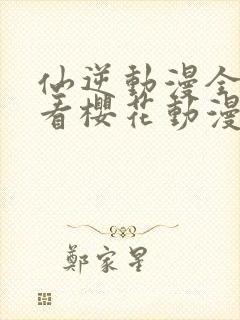 仙逆動漫全
看櫻花動漫
鄭家星